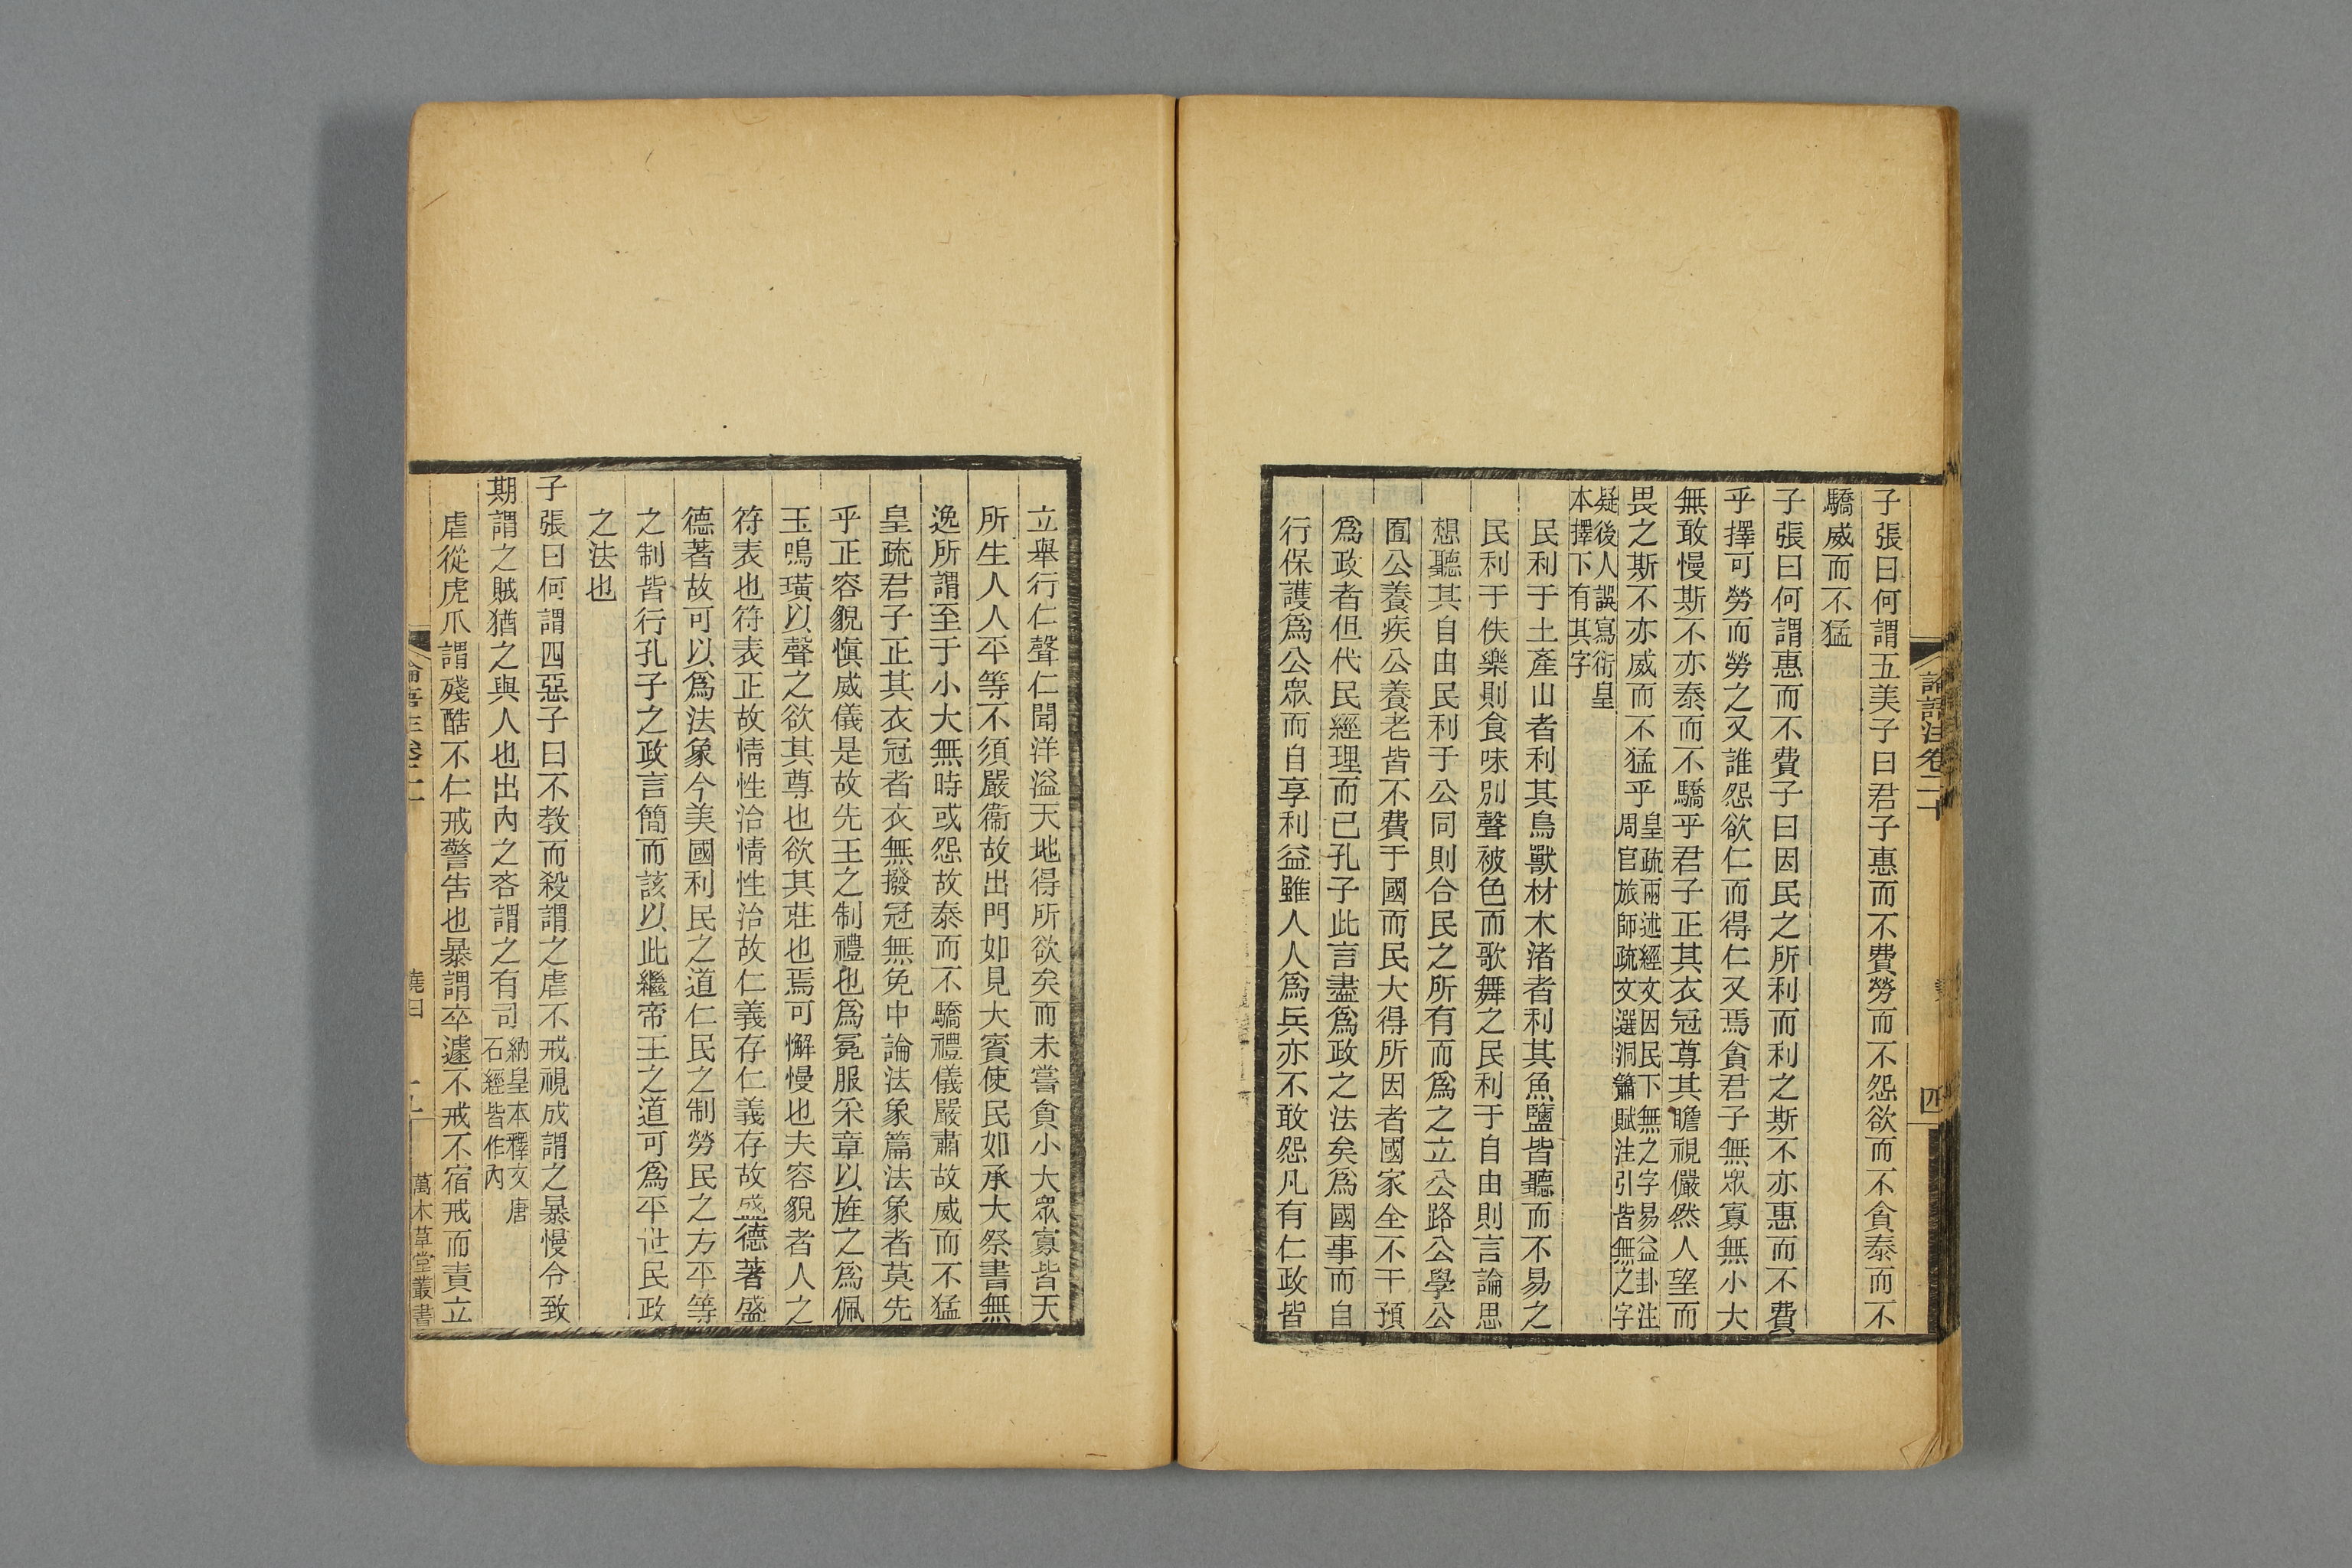 論語注卷二十
四
子張曰何謂五美子曰君子惠而不費勞而不怨欲而不貪泰而不
驕威而不猛
子張曰何謂惠而不費子曰因民之所利而利之斯不亦惠而不費
乎擇可勞而勞之又誰怨欲仁而得仁又焉貪君子無眾寡無小大
無敢慢斯不亦泰而不驕乎君子正其衣冠尊其瞻視儼然人望而
畏之斯不亦威而不猛乎
皇疏兩述經文因民下無之字易益卦注
周官旅師疏文選洞簫賦注引皆無之字
疑後人誤寫衍皇
本擇下有其字
民利于土產山者利其鳥獸材木渚者利其魚鹽皆聽而不易之
民利于佚樂則食味別聲被色而歌舞之民利于自由則言論思
想聽其自由民利于公同則合民之所有而爲之立公路公學公
囿公養疾公養老皆不費于國而民大得所因者國家全不干預
爲政者但代民經理而已孔子此言盡爲政之法矣爲國事而自
行保護爲公眾而自享利益雖人人爲兵亦不敢怨凡有仁政皆
立舉行仁聲仁聞洋溢天地得所欲矣而未嘗貪小大眾寡皆天
所生人人平等不須嚴衞故出門如見大賓使民如承大祭書無
逸所謂至于小大無時或怨故泰而不驕禮儀嚴肅故威而不猛
皇疏君子正其衣冠者衣無撥冠無免中論法象篇法象者莫先
乎正容貌愼威儀是故先王之制禮也爲冕服采章以旌之爲佩
玉鳴璜以聲之欲其尊也欲其莊也焉可懈慢也夫容貌者人之
符表也符表正故情性治情性治故仁義存仁義存故盛德著盛
德著故可以爲法象今美國利民之道仁民之制勞民之方平等
之制皆行孔子之政言簡而該以此繼帝王之道可爲平世民政
之法也
子張曰何謂四惡子曰不教而殺謂之虐不戒視成謂之暴慢令致
期謂之賊猶之與人也出內之吝謂之有司
納皇本釋文唐
石經皆作內
虐從虎爪謂殘酷不仁戒警告也暴謂卒遽不戒不宿戒而責立
論語注卷二十
堯曰
萬木草堂叢書